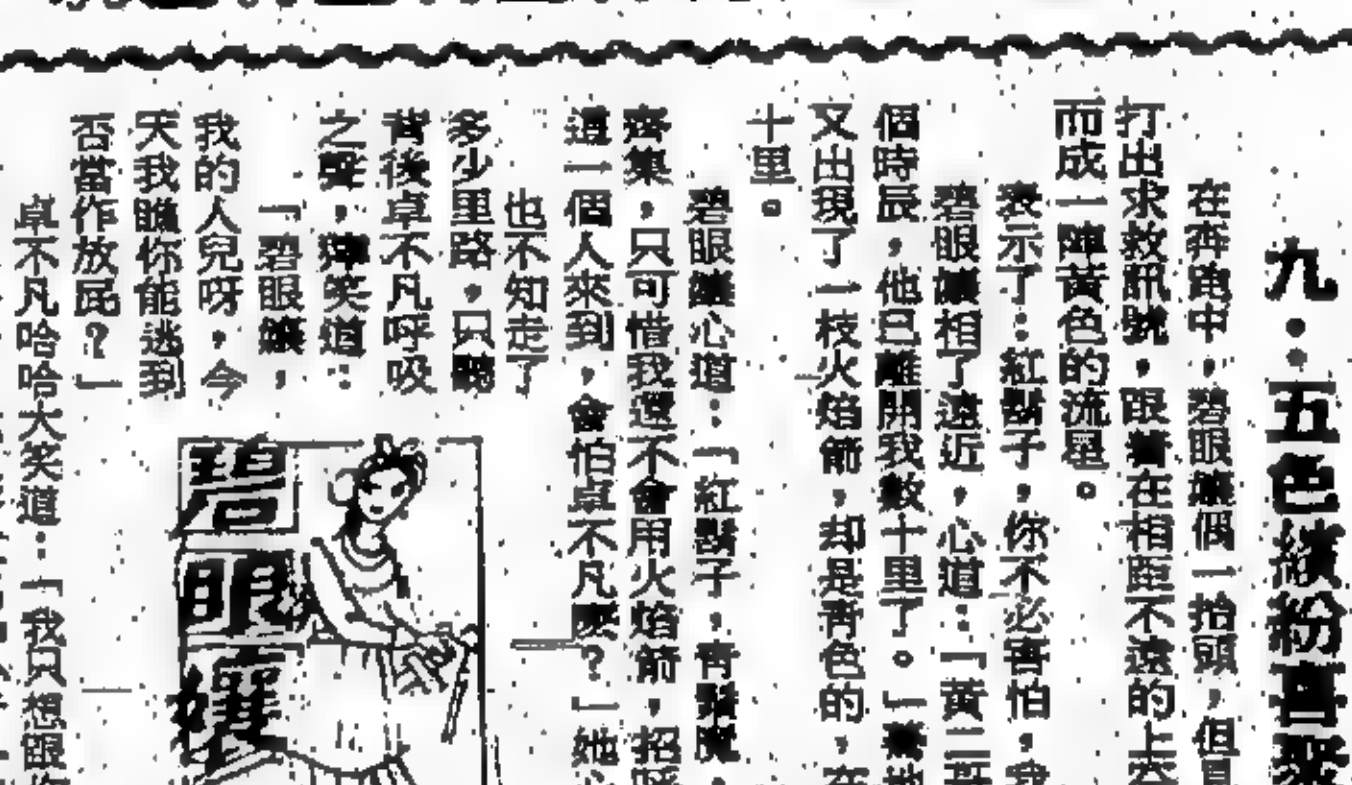 九：五色繽粉喜
在奔跑中，碧眼孃偶一抬頭，但見
打出求救訊號，跟着在相距不遠的上空
而成一陣黃色的流星。
表示了：紅鬍子，你不必害怕，我
碧眼孃相了遠近，心道：「黃二哥
個時辰，他已離開我數十里了。」
又出現了一枝火焰箭，却是青色的，在
十里。
碧眼孃心道：「紅鬍子，青鬚魔，
齊集，只可惜我還不會用火焰箭，招呼
這一個人來到，會怕卓不凡麼？」她心
也不知走了
多少里路，只聽
背後卓不凡呼吸
之聲，獰笑道：
「碧眼孃，
我的人兒呀，今
天我瞧你能逃到
否當作放屁？」
卓不凡哈哈大笑道：「我只想跟你
碧眼孃